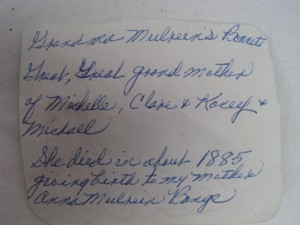 Grandma Mulrein's Bonnet
Great, Great grand mother
of Michelle, Clare & Kacey &
Michael
She died in about 1885
giving birth to my mother
Anna Mulrein Bange